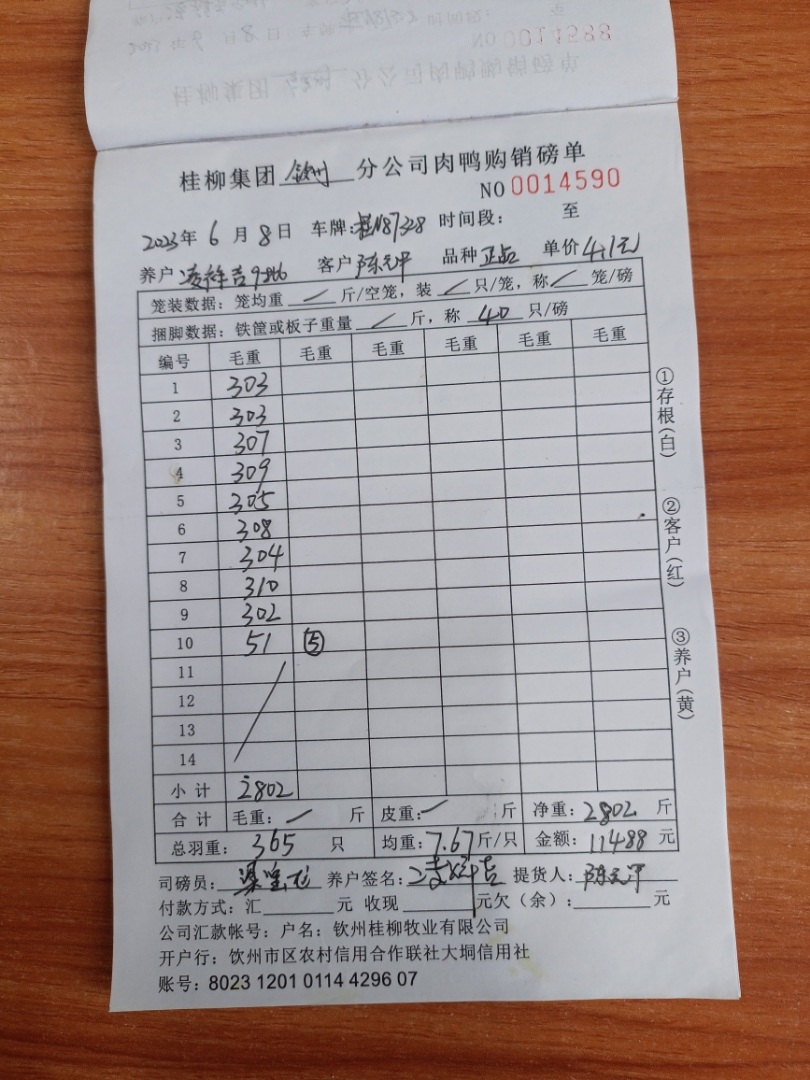 NO 0014588
桂柳集团 钦州 分公司肉鸭购销磅单
NO 0014590
2023年 6 月 8 日 车牌: 时间段: 至
养户 凌祥吉 客户 陈元平 品种 单价 4.1元
笼装数据: 笼均重 / 斤/空笼, 装 / 只/笼, 称 / 笼/磅
捆脚数据: 铁筐或板子重量 / 斤, 称 40 只/磅
编号 毛重 毛重 毛重 毛重 毛重 毛重
1 303
2 303
3 307
4 309
5 305
6 308
7 304
8 310
9 302
10 51 ⑤
11
12
13
14
小 计 2802
合 计 毛重: / 斤 皮重: / 斤 净重: 2802 斤
总羽重: 365 只 均重: 7.67 斤/只 金额: 11488 元
司磅员: 养户签名: 凌祥吉 提货人: 陈元平
付款方式: 汇 元 收现 元欠(余): 元
公司汇款帐号: 户名: 钦州桂柳牧业有限公司
开户行: 钦州市区农村信用合作联社大垌信用社
账号: 8023 1201 0114 4296 07
①存根(白)
②客户(红)
③养户(黄)